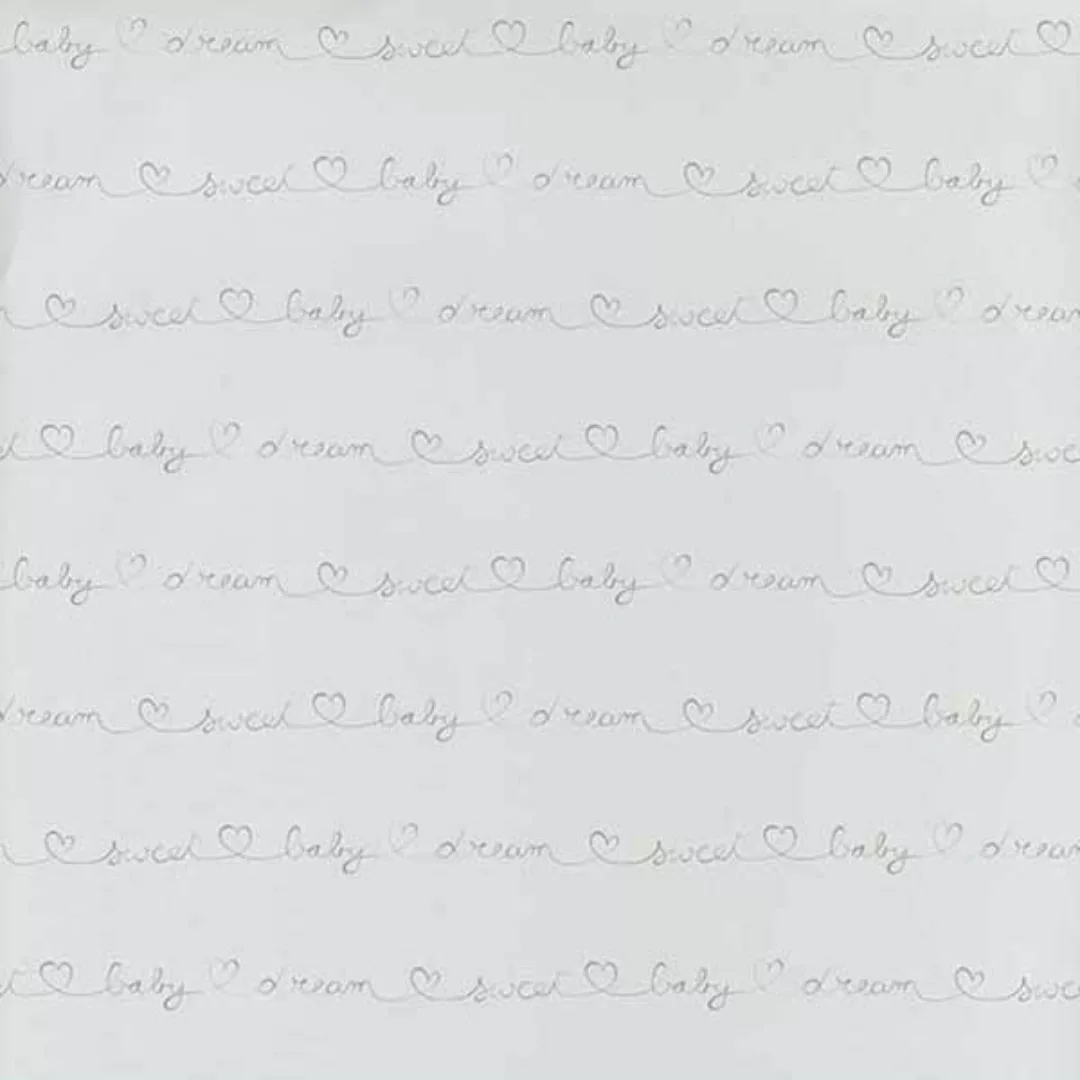 baby ♡ dream ♡ sweet ♡ baby ♡ dream ♡ sweet ♡
dream ♡ sweet ♡ baby ♡ dream ♡ sweet ♡ baby ♡
♡ sweet ♡ baby ♡ dream ♡ sweet ♡ baby ♡ dream
♡ baby ♡ dream ♡ sweet ♡ baby ♡ dream ♡ swe
baby ♡ dream ♡ sweet ♡ baby ♡ dream ♡ sweet ♡
dream ♡ sweet ♡ baby ♡ dream ♡ sweet ♡ baby ♡
♡ sweet ♡ baby ♡ dream ♡ sweet ♡ baby ♡ dream
♡ baby ♡ dream ♡ sweet ♡ baby ♡ dream ♡ swe